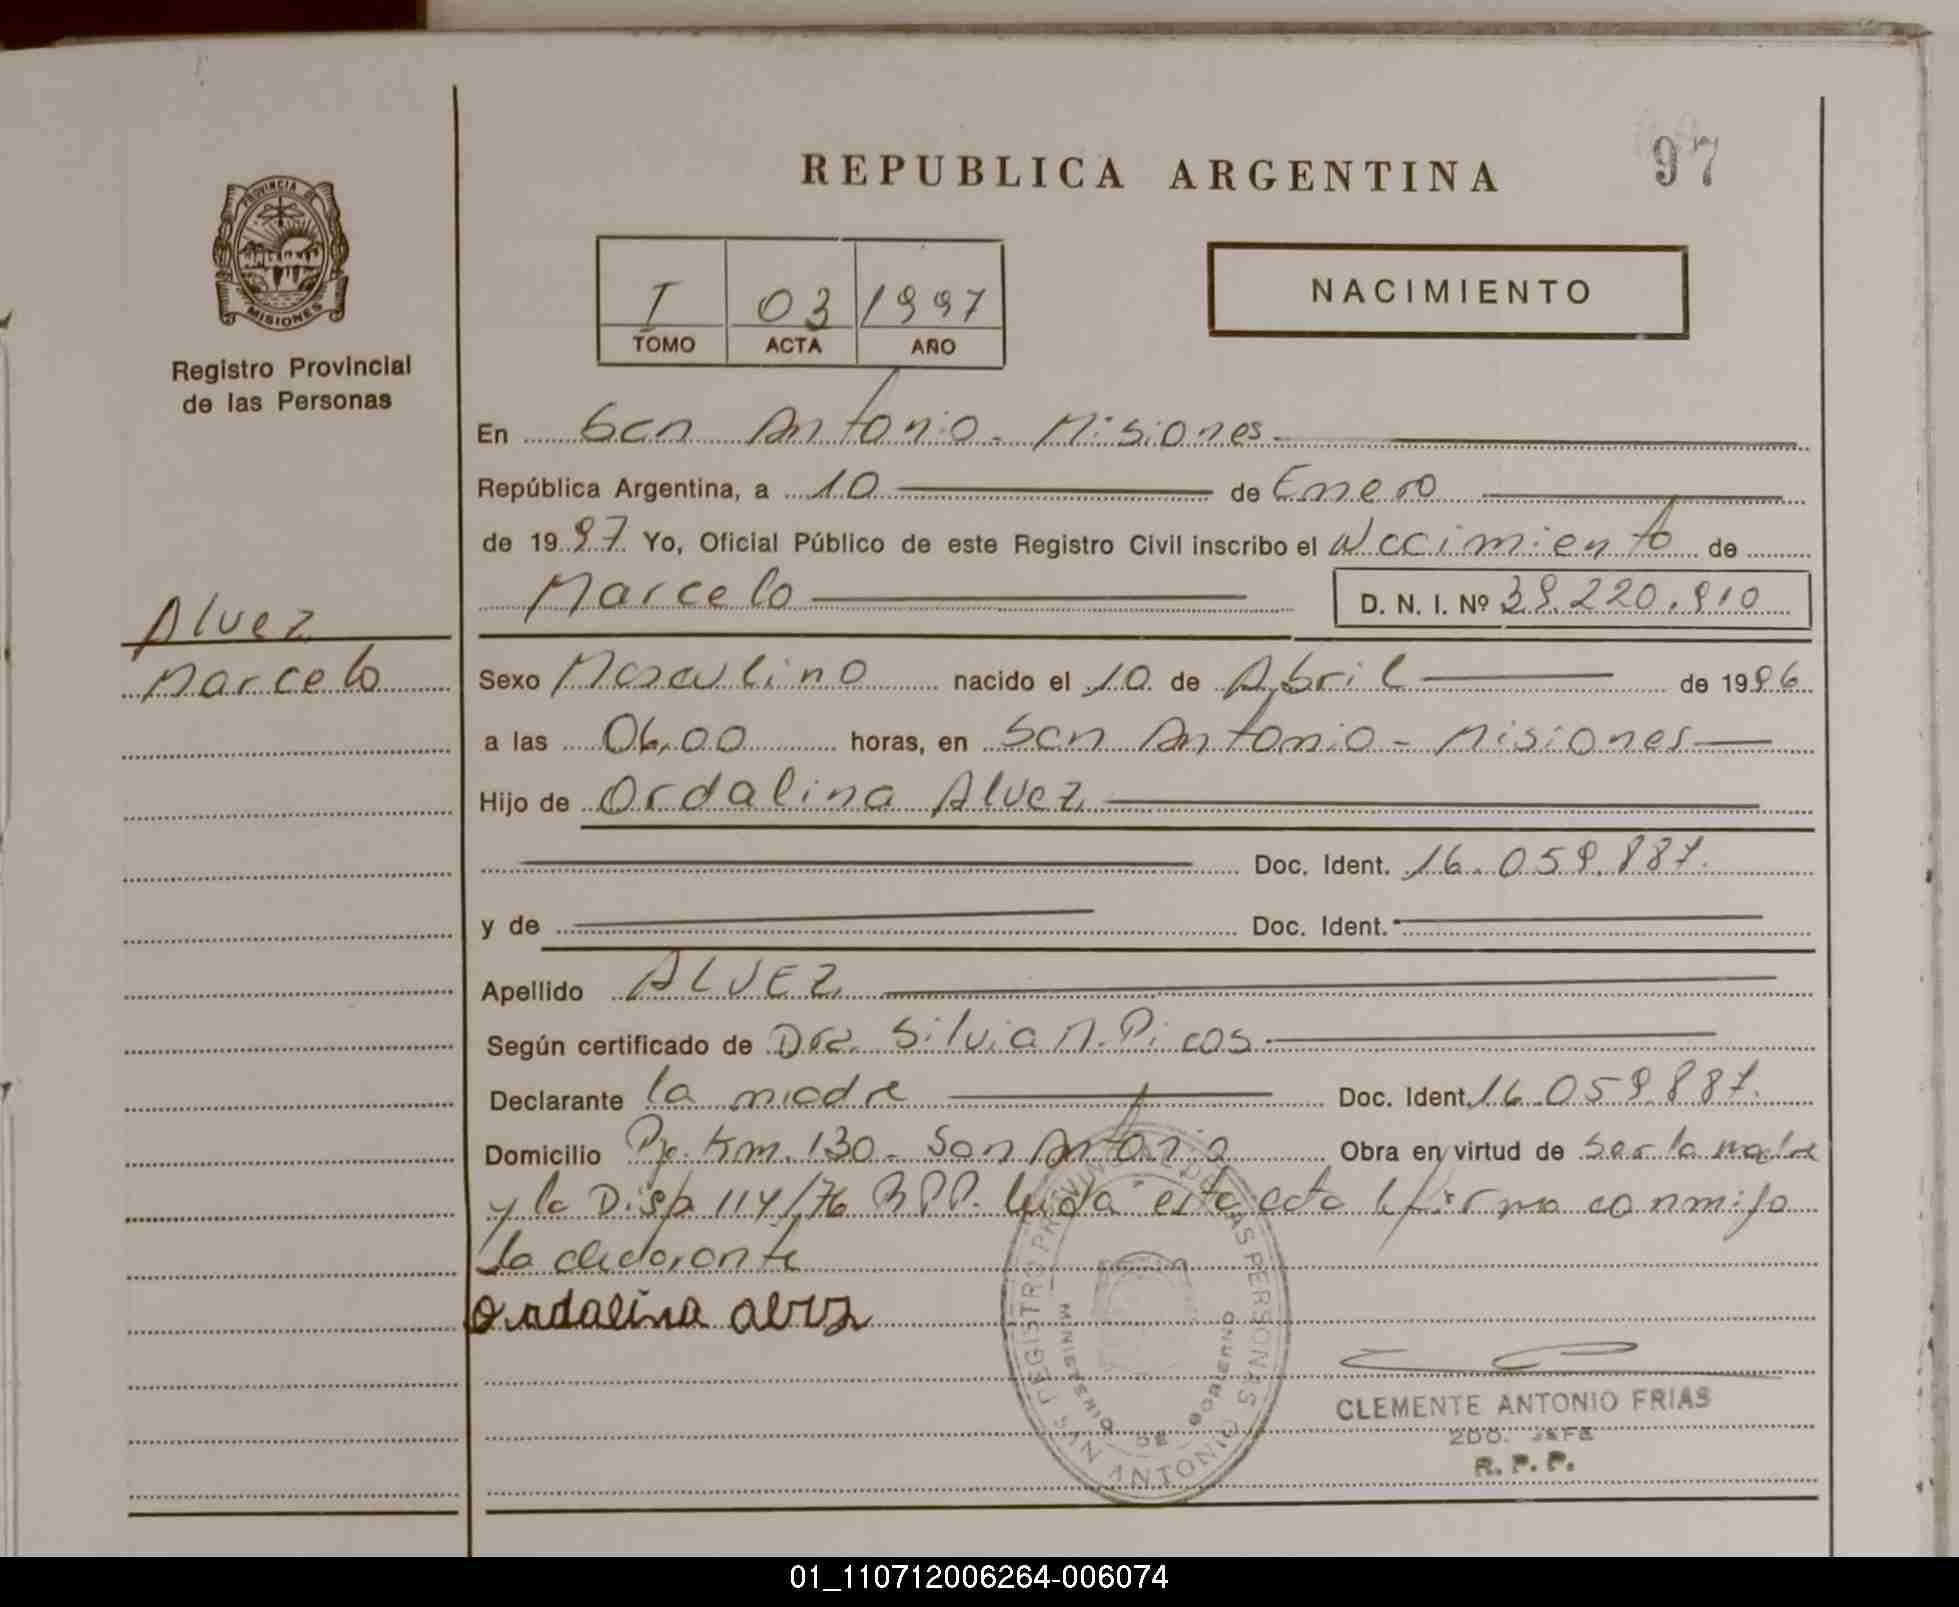 97
REPUBLICA ARGENTINA
PROVINCIA DE
MISIONES
Registro Provincial
de las Personas
I 03 1997
TOMO ACTA AÑO
NACIMIENTO
En San Antonio - Misiones
República Argentina, a 10 de Enero
de 1997 Yo, Oficial Público de este Registro Civil inscribo el Nacimiento de
Marcelo D. N. I. Nº 39.220.910
Alvez
Marcelo
Sexo Masculino nacido el 10 de Abril de 1996
a las 06,00 horas, en San Antonio - Misiones
Hijo de Ordalina Alvez
Doc. Ident. 16.059.887.
y de Doc. Ident.
Apellido ALVEZ
Según certificado de Dra. Silvia N. Picos
Declarante la madre Doc. Ident. 16.059.887.
Domicilio Pje. Km. 130 - San Antonio Obra en virtud de ser la madre
y la Disp. 114/76 R.P.P. leida esta acta la firma conmigo
la declarante
Ordalina alvez
REGISTRO PROVINCIAL DE LAS PERSONAS
MINISTERIO DE GOBIERNO
SAN ANTONIO
CLEMENTE ANTONIO FRIAS
2DO. JEFE
R. P. P.
01_110712006264-006074